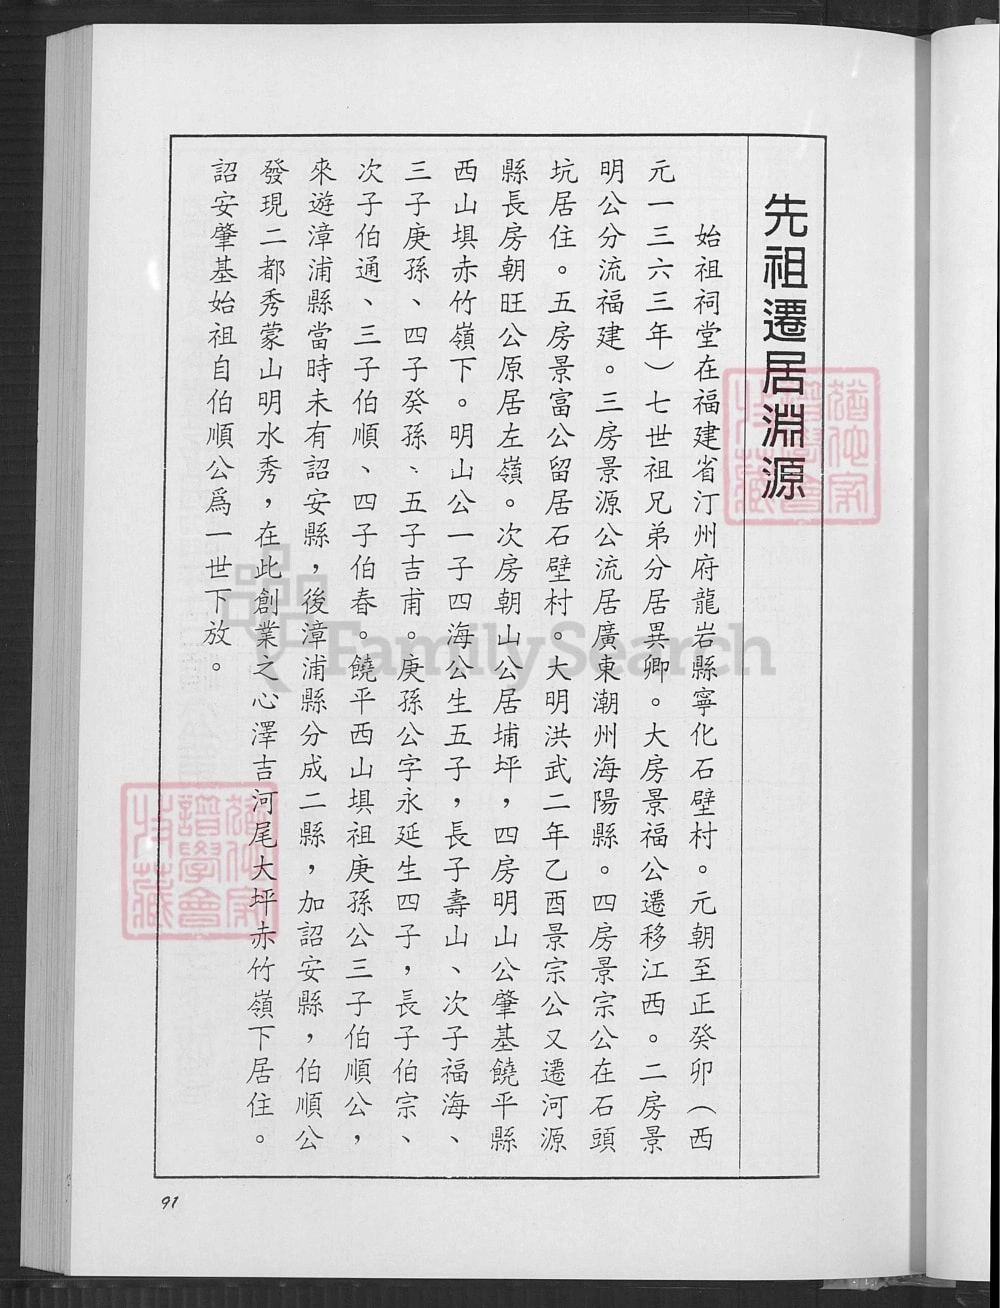 先祖遷居淵源
始祖祠堂在福建省汀州府龍岩縣寧化石壁村。元朝至正癸卯（西
元一三六三年）七世祖兄弟分居異卿。大房景福公遷移江西。二房景
明公分流福建。三房景源公流居廣東潮州海陽縣。四房景宗公在石頭
坑居住。五房景富公留居石壁村。大明洪武二年乙酉景宗公又遷河源
縣長房朝旺公原居左嶺。次房朝山公居埔坪，四房明山公肇基饒平縣
西山埧赤竹嶺下。明山公一子四海公生五子，長子壽山、次子福海、
三子庚孫、四子癸孫、五子吉甫。庚孫公字永延生四子，長子伯宗、
次子伯通、三子伯順、四子伯春。饒平西山埧祖庚孫公三子伯順公，
來遊漳浦縣當時未有詔安縣，後漳浦縣分成二縣，加詔安縣，伯順公
發現二都秀蒙山明水秀，在此創業之心澤吉河尾大坪赤竹嶺下居住。
詔安肇基始祖自伯順公爲一世下放。
譜學會
譜學會
FamilySearch
91